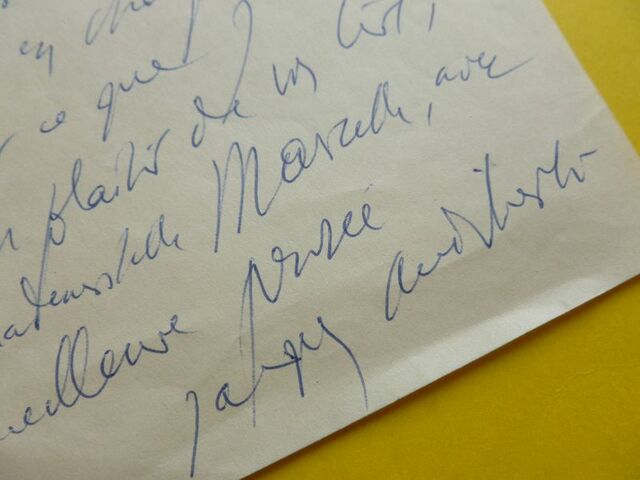 ce que
plaisir de vos
Mademoiselle Marcelle, avec
meilleure pensée
Jacques Audiberti